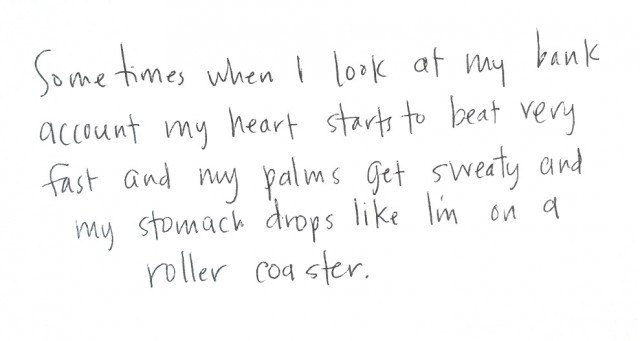 Sometimes when I look at my bank
account my heart starts to beat very
fast and my palms get sweaty and
my stomach drops like I'm on a
roller coaster.